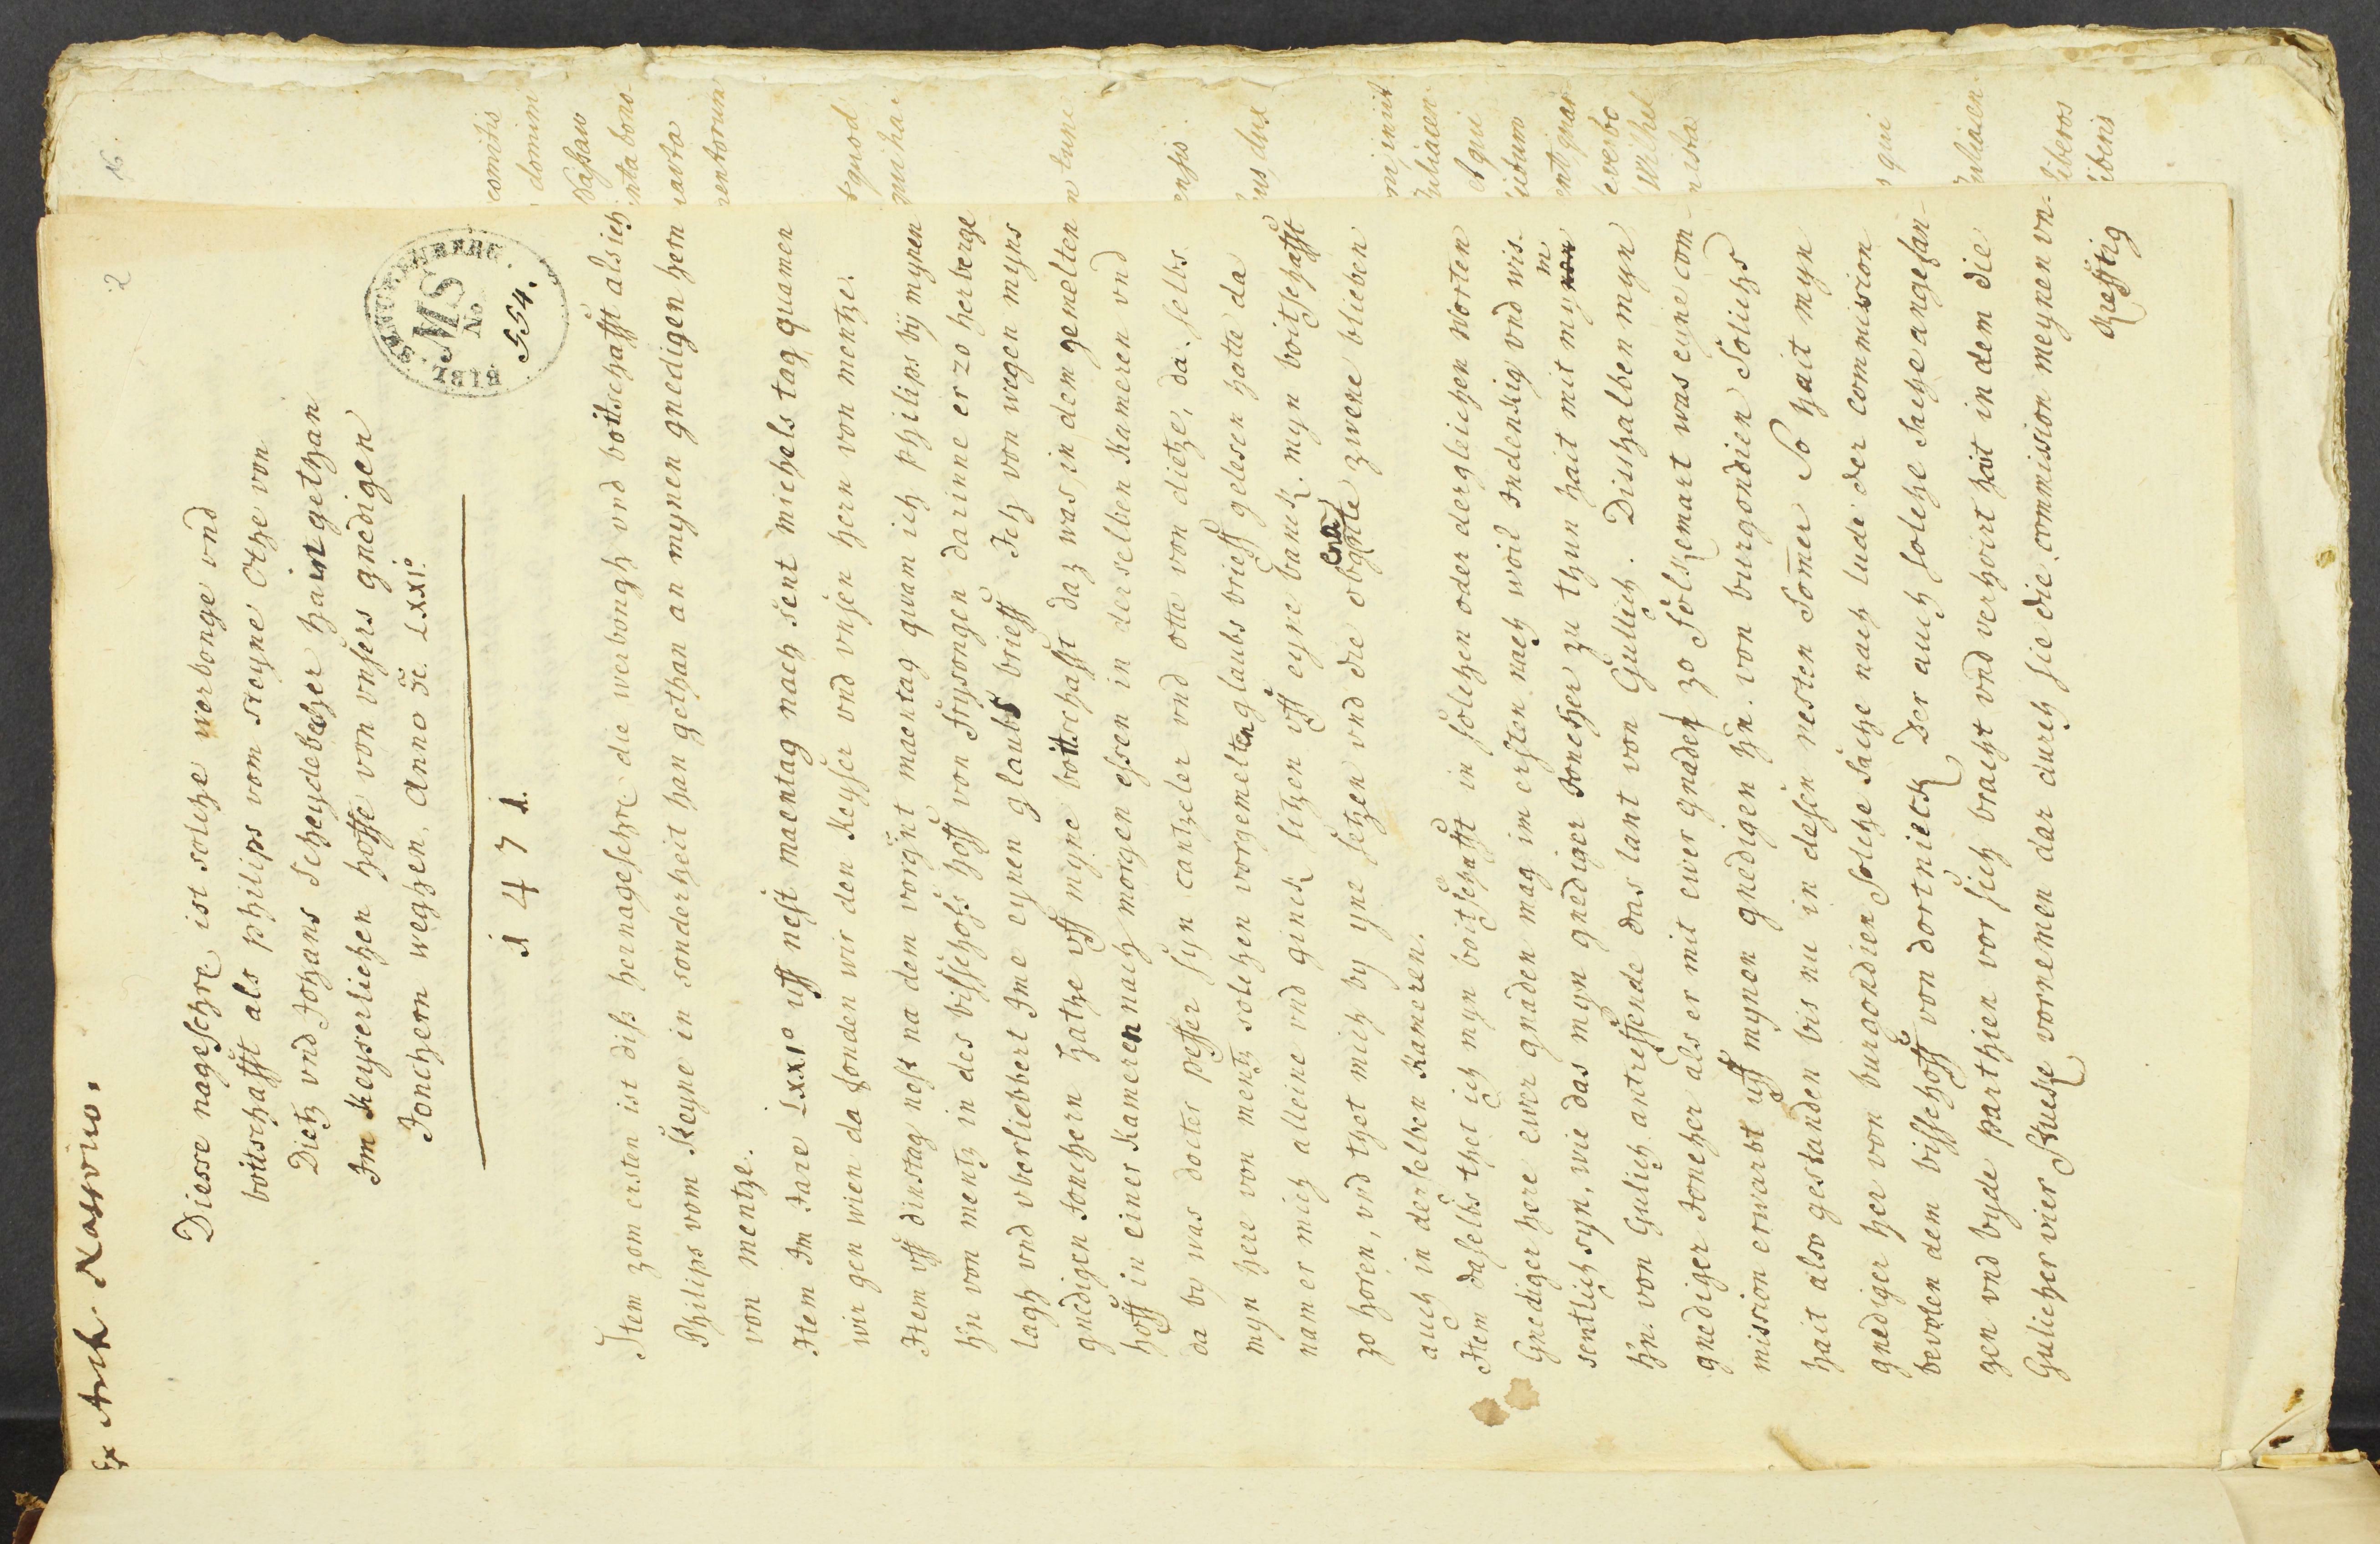 Ex Arch Nassovico.
2
Diesse nageschre ist solche werbonge vnd
bottschafft als philips vom steyne Othe von
Dietz vnd Johans Scheydebecher haint gethan
Im Keyserlichen hoffe von vnsers gnedigen
Jonchern weghen. Anno &c. LXXI°
1471.
MS
No
554.
Item zom ersten ist diß hernageschre die werbongh vnd bottschafft als ich
Philips vom Steyne in sonderheit han gethan an mynen gnedigen hern
von mentze.
Item Im Jare LXXI° uff nest maentag nach sent michels tag quamen
wir gen wien da fonden wir den Keyser vnd vnsen hern von mentze.
Item vff dinstag nest na dem vorgnt maentag quam ich philips by mynen
hn von mentz in des bisschofs hoff von frysongen darinne er zo herberge
lagh vnd vberliebbert Ime eynen glaubs brieff Ich von wegen myns
gnedigen Jonchern hathe vff myne bottschafft daz was, in dem gemelten
hoff in einer Kameren nach morgen essen in derselben Kameren vnd
da by was docter pesser syn cantzeler vnd otte von dietze, da. selbs
myn here von mentz solchen vorgemelten glaubs brieff gelesen hatte da
nam er mich alleine vnd ginck sitzen vff eyne banck. myn boitschafft
zo horen, vnd thet mich by yne setzen vnd die obgnte zwene blieben
auch in derselben Kameren.
Item daselbs thet ich myn boitschafft in solchen oder dergleichen worten
Gnediger here ewer gnaden mag im ersten nach woil Indenkig vnd wis-
sentlich syn, wie das myn gnediger Joncher zu thun hait mit mynon m
hn. von Gulich antreffende das lant von Gullich. Dishalben myn
gnediger Joncher als er mit ewer gnaden zo Folckemart was eyne com-
mission erwarbt uff mynen gnedigen hn. von burgondien Solichs
hait also gestanden bis nu in desen nesten Somer So hait myn
gnediger her von burgondien Solche Sache nach lude der commission
bevolen dem bisschoff von dornick Der auch solche Sache angefan-
gen vnd byde parthien vor sich bracht vnd verhoirt hait in dem die
Gulicher vier Stucke vornemen dar durch sie die commission meynen vn-
krefftig
16
comitis
domini
Naßaw
nta bono-
uarto
rentorum
synod
mihai
n tunc
ensis
us dux
ni inivit
Juliacen
s qui
uliacen
liberos
ibens